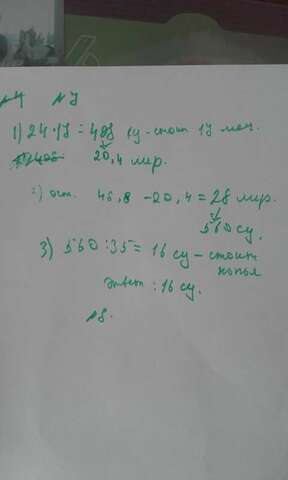 №7
1) 24·17=408 су-стоит 17 меч.
20,4 лир.
2) ост. 48,8 -20,4=28 лир.
560 су.
3) 560:35= 16 су-стоит
копья
ответ: 16 су.
№8.